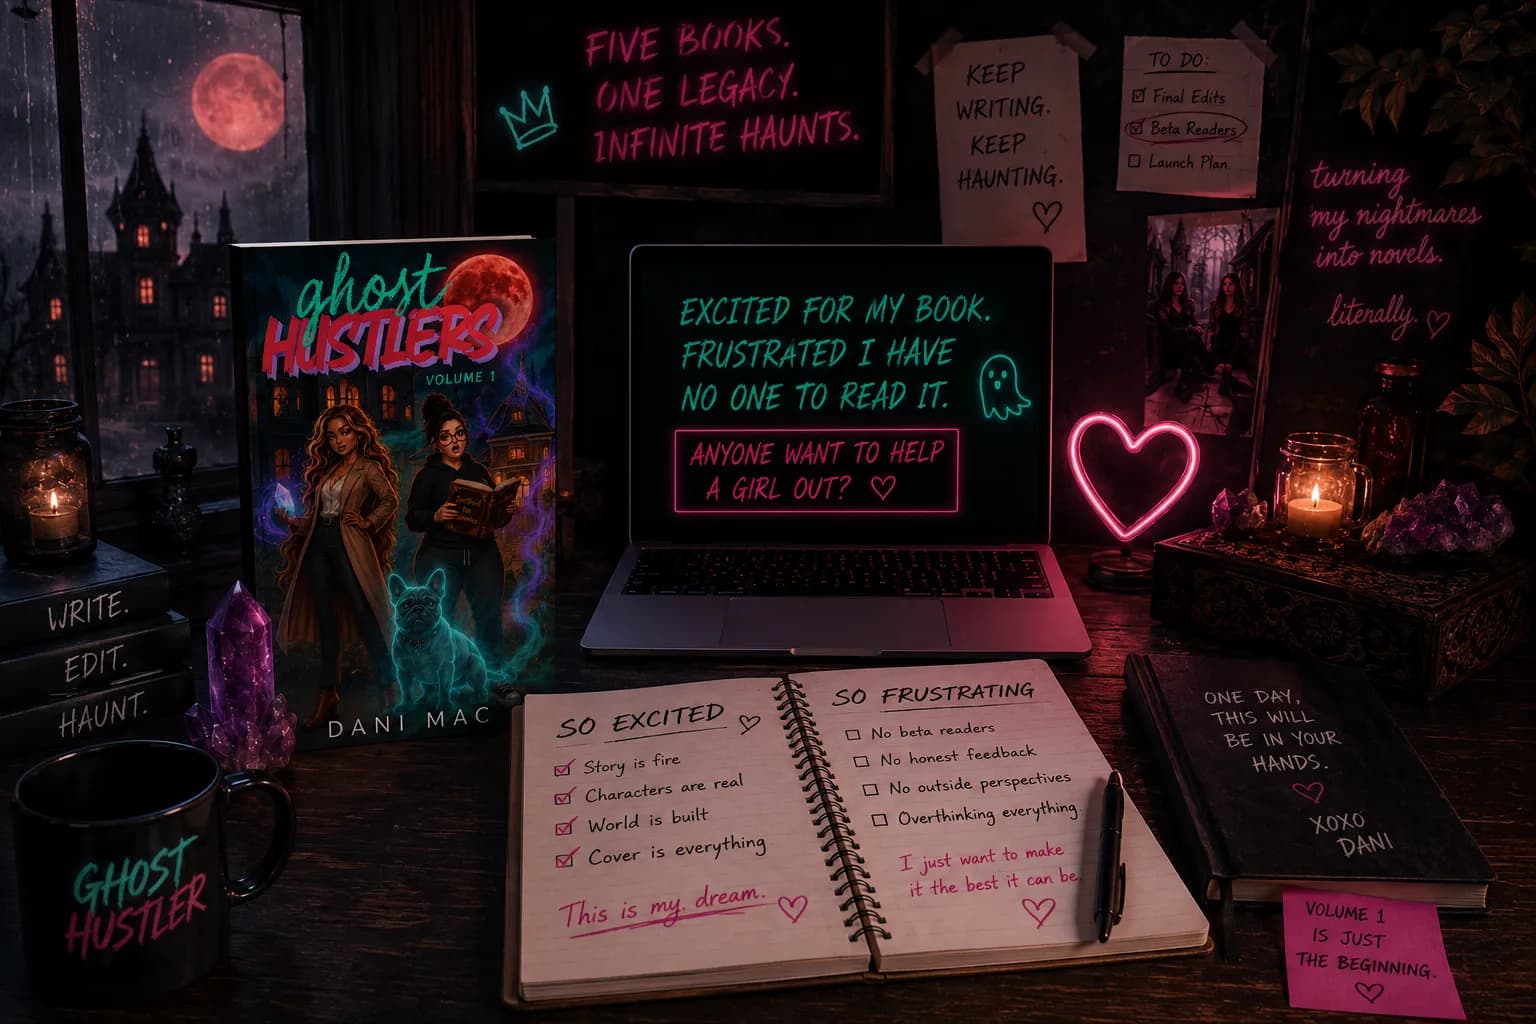 FIVE BOOKS.
ONE LEGACY.
INFINITE HAUNTS.
KEEP
WRITING.
KEEP
HAUNTING.
TO DO:
Final Edits
Beta Readers
Launch Plan
turning
my nightmares
into novels.
literally.
ghost
HUSTLERS
VOLUME 1
DANI MAC
EXCITED FOR MY BOOK.
FRUSTRATED I HAVE
NO ONE TO READ IT.
ANYONE WANT TO HELP
A GIRL OUT?
WRITE.
EDIT.
HAUNT.
GHOST
HUSTLER
SO EXCITED
Story is fire
Characters are real
World is built
Cover is everything
This is my dream.
SO FRUSTRATING
No beta readers
No honest feedback
No outside perspectives
Overthinking everything
I just want to make
it the best it can be.
ONE DAY,
THIS WILL
BE IN YOUR
HANDS.
XOXO
DANI
VOLUME 1
IS JUST
THE BEGINNING.